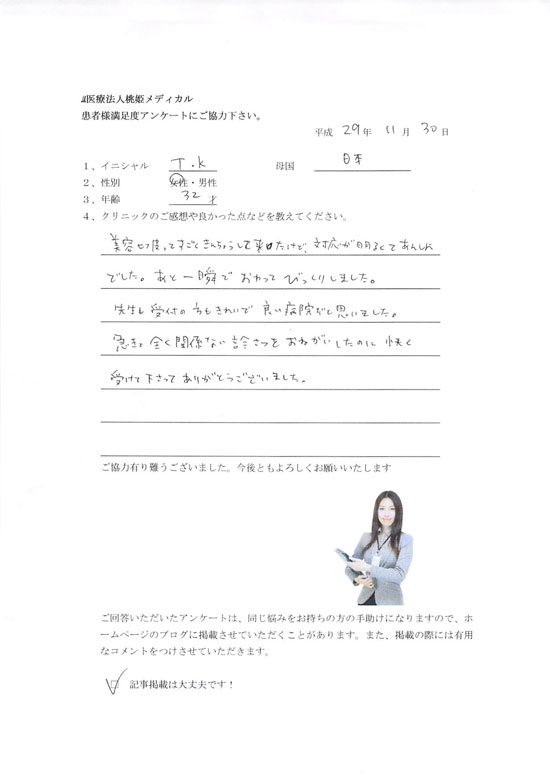 医療法人桃姫メディカル
患者様満足度アンケートにご協力下さい。
平成 29年 11月 30日
1、イニシャル T.K 母国 日本
2、性別 女性・男性
3、年齢 32才
4、クリニックのご感想や良かった点などを教えてください。
美容 って すごくきんちょうして来たけど、対応が明るくてあんしん
でした。あと一瞬でおわってびっくりしました。
先生も受付の方もきれいで良い病院だと思いました。
急きょ全く関係ない診さつをおねがいしたのに快く
受けて下さってありがとうございました。
ご協力有り難うございました。今後ともよろしくお願いいたします
ご回答いただいたアンケートは、同じ悩みをお持ちの方の手助けになりますので、ホ
ームページのブログに掲載させていただくことがあります。また、掲載の際には有用
なコメントをつけさせていただきます。
記事掲載は大丈夫です！